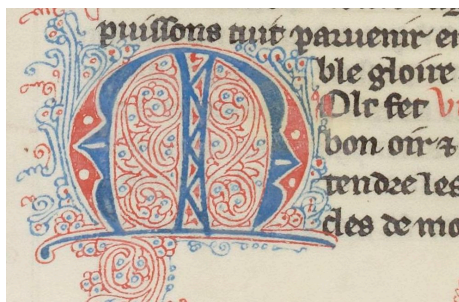 puissons tuit paruenir en
ble gloire
M Olt fet
bon oir ⁊
tendre les
cles de mo